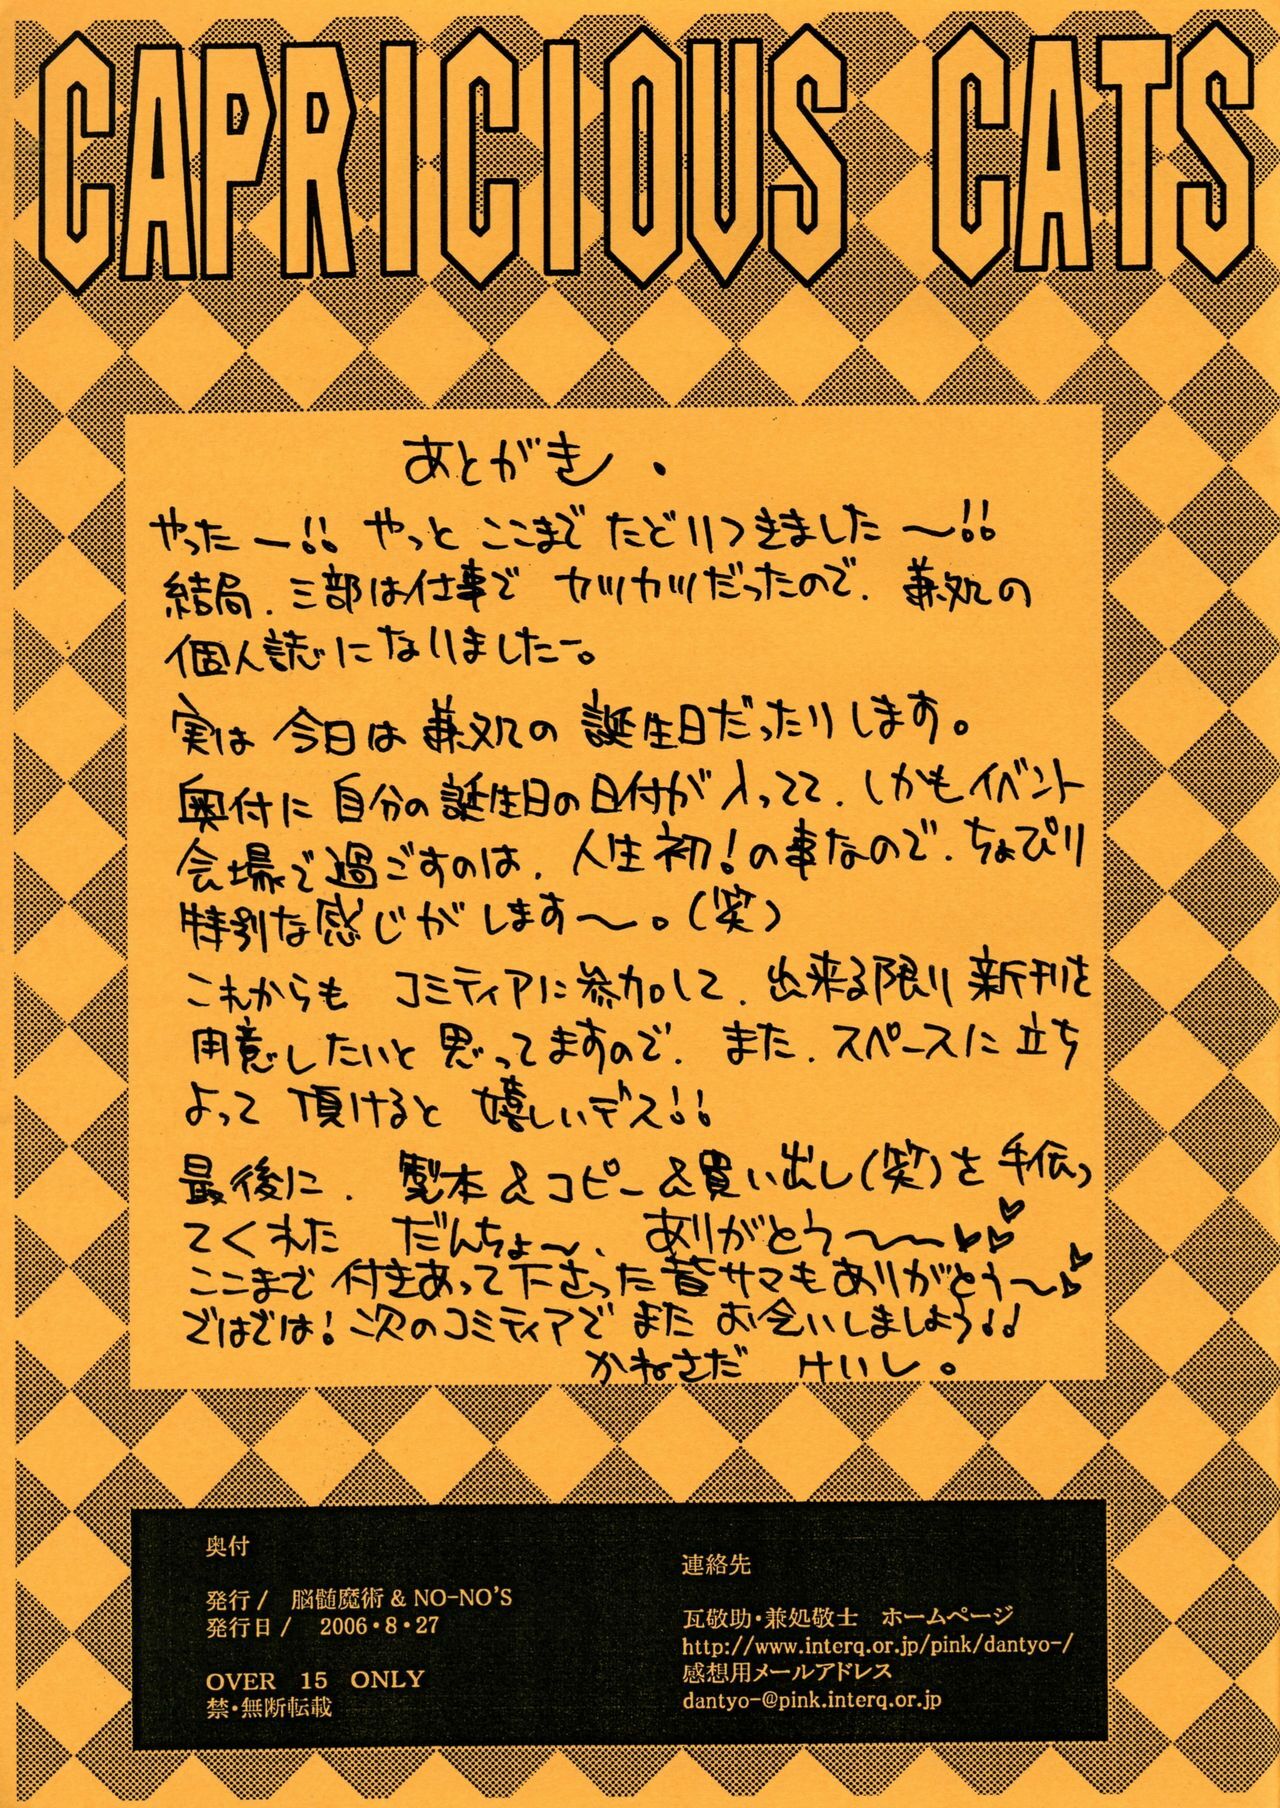 CAPRICIOUS CATS
あとがき.
やったー!! やっと ここまで たどりつきました〜!!
結局、三部は仕事で カツカツだったので、兼処の
個人誌になりましたー。
実は 今日は 兼処の 誕生日だったりします。
奥付に 自分の誕生日の日付が入ってて、しかもイベント
会場で過ごすのは、人生初!の事なので、ちょぴり
特別な感じがします〜。(笑)
これからも コミティアに参加して、出来る限り 新刊を
用意したいと 思ってますので、また、スペースに立ち
よって 頂けると 嬉しいデス!!
最後に、製本&コピー&買い出し(笑)を 手伝っ
てくれた だんちょ〜、ありがとう〜〜♥♥♥
ここまで 付きあって下さった皆サマもありがとう〜♥♥
ではでは!次のコミティアで また お会いしましょう!!
かねさだ けいし。
奥付
発行/ 脳髄魔術 & NO-NO'S
発行日/ 2006・8・27
OVER 15 ONLY
禁・無断転載
連絡先
瓦敬助・兼処敬士 ホームページ
http://www.interq.or.jp/pink/dantyo-/
感想用メールアドレス
dantyo-@pink.interq.or.jp